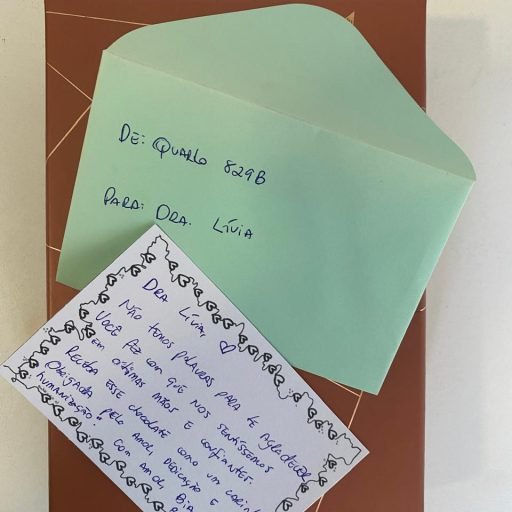 DE: QUARTO 829B
PARA: DRA. LÍVIA
DRA LÍVIA, ♡
NÃO TEMOS PALAVRAS PARA TE AGRADECER
VOCÊ FEZ COM QUE NOS SENTÍSSEMOS
EM ÓTIMAS MÃOS E CONFIANTES.
RECEBA ESSE CHOCOLATE COMO UM
OBRIGADA PELO AMOR, DEDICAÇÃO E
HUMANIZAÇÃO.
COM AMOR,
BIA